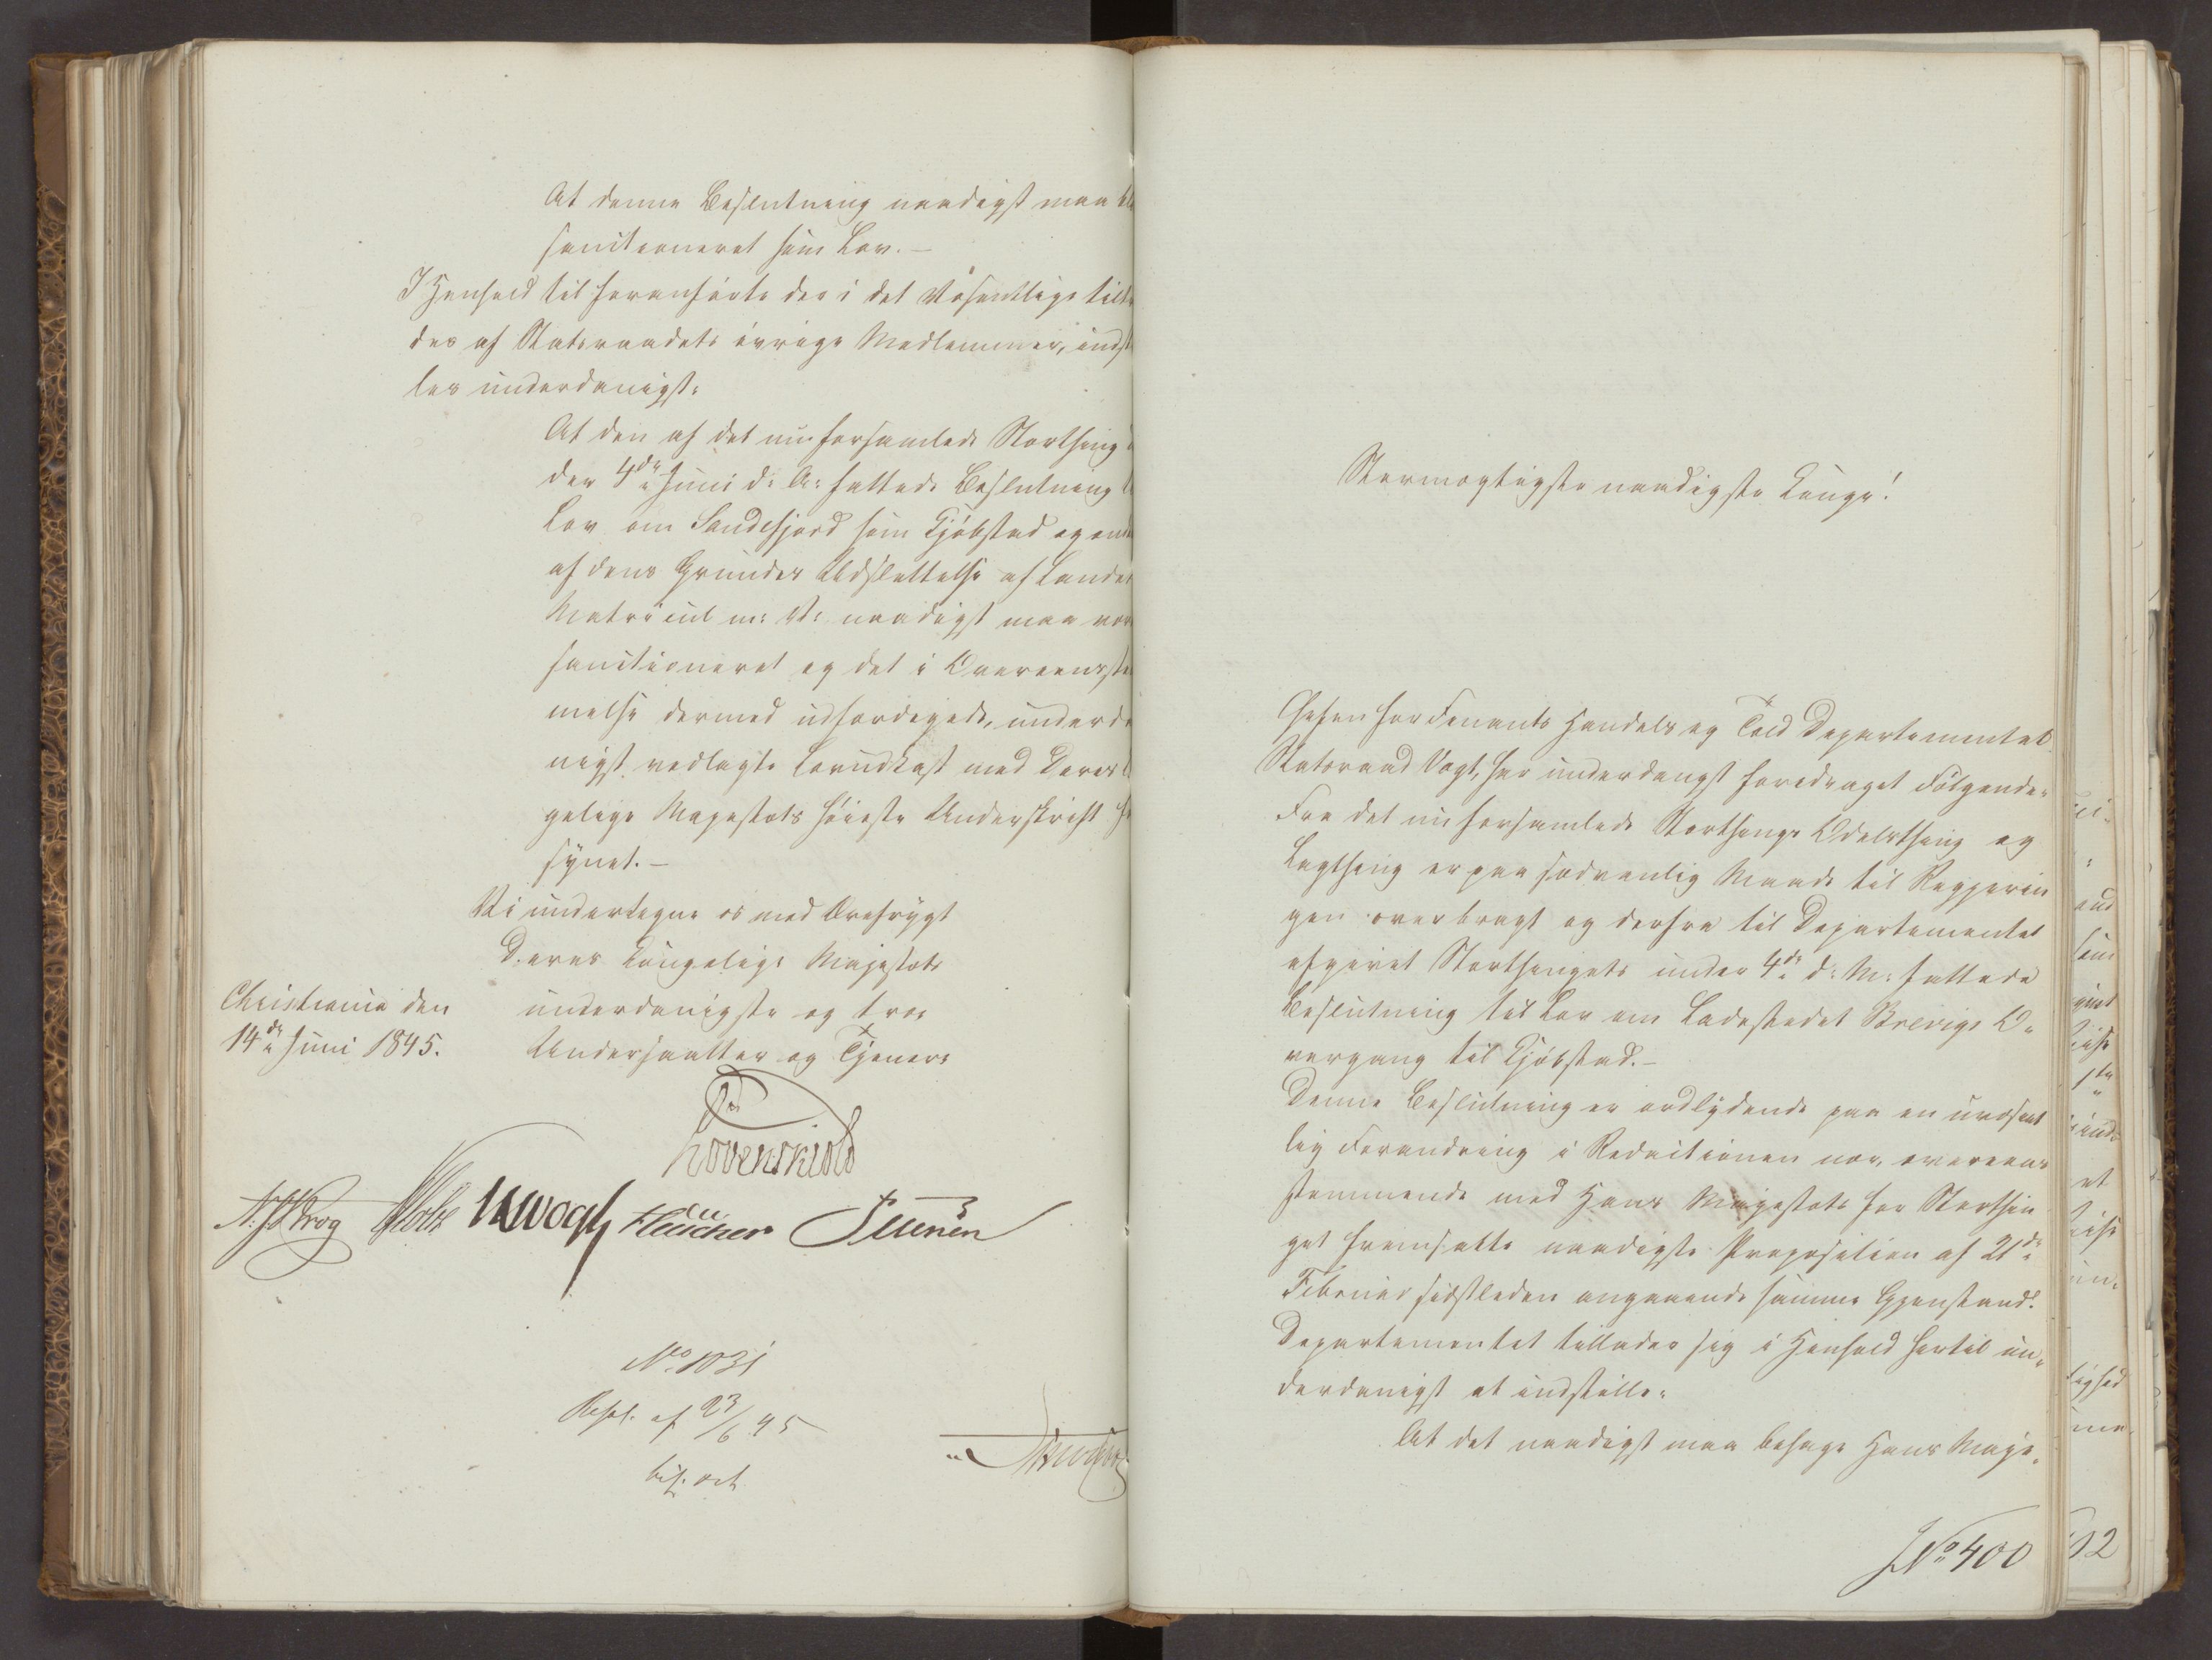 At denne Beslutning naadigst maa bli
sanctioneret som Lov. –
I Henhold til foranførte der i det Væsentlige tilt
des af Statsraadets øvrige Medlemmer, indst
les underdanigst:
At den af det nu forsamlede Storthing
den 4de Juni d: A: fattede Beslutning t
Lov om Sandefjord som Kjøbstad og om
af dens Grunders Udslettelse af Landet
Matricul m: V: naadigst maa vor
sanctioneret og det i Overeensste
melse dermed udfærdigede, underda
nigst vedlagte Lovudkast med Deres
gelige Majestæts høieste Underskrift fo
synet. –
Vi undertegne os med Ærefrygt
Deres Kongelige Majestæts
Christiania den
underdanigste og troe
14de Juni 1845.
Undersaatter og Tjenere
Løvenskiold
N. J. Krog Holst JHVogt Fleischer Petersen
No 1031
Resol. af 23/6 45
Stermægtigste naadigste Konge!
Chefen for Finants Handels og Told Departementet
Statsraad Vogt, har underdanigst foredraget Følgende:
Fra det nu forsamlede Storthings Odelsthing og
Lagthing er paa sædvanlig Maade til Regjerin
gen overbragt og derfra til Departementet
afgivet Storthingets under 4de d: M: fattede
Beslutning til Lov om Ladestedet Brevigs O-
vergang til Kjøbstad. –
Denne Beslutning er ordlydende paa en uvæsent
lig Forandring i Redactionen nær, overeens
stemmende med Hans Majestæts for Storthin
get fremsatte naadigste Proposition af 21de
Februar sidstleden angaaende samme Gjenstand.
Departementet tillader sig i Henhold hertil un-
derdanigst at indstille:
At det naadigst maa behage Hans Maje-
No 400